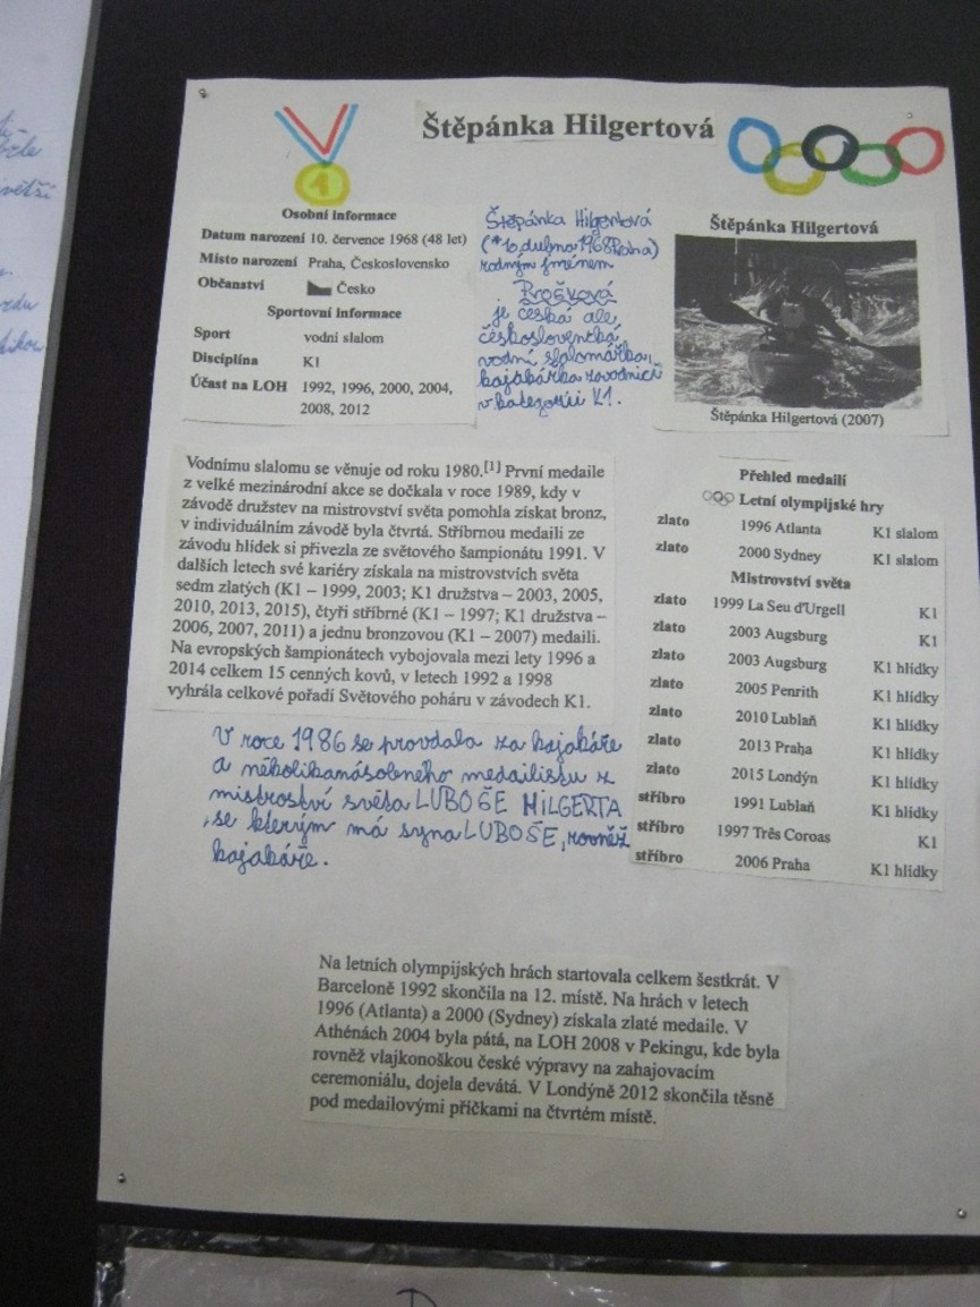 Štěpánka Hilgertová
1
Osobní informace
Datum narození 10. července 1968 (48 let)
Místo narození Praha, Československo
Občanství Česko
Sportovní informace
Sport vodní slalom
Disciplína K1
Účast na LOH 1992, 1996, 2000, 2004,
2008, 2012
Štěpánka Hilgertová
(*10. dubna 1968 Praha)
rodným jménem
Prošková
je česká ale
československá
vodní slalomářka,
kajakářka závodnicí
v kategorii K1.
Štěpánka Hilgertová
Štěpánka Hilgertová (2007)
Vodnímu slalomu se věnuje od roku 1980.[1] První medaile
z velké mezinárodní akce se dočkala v roce 1989, kdy v
závodě družstev na mistrovství světa pomohla získat bronz,
v individuálním závodě byla čtvrtá. Stříbrnou medaili ze
závodu hlídek si přivezla ze světového šampionátu 1991. V
dalších letech své kariéry získala na mistrovstvích světa
sedm zlatých (K1 – 1999, 2003; K1 družstva – 2003, 2005,
2010, 2013, 2015), čtyři stříbrné (K1 – 1997; K1 družstva –
2006, 2007, 2011) a jednu bronzovou (K1 – 2007) medaili.
Na evropských šampionátech vybojovala mezi lety 1996 a
2014 celkem 15 cenných kovů, v letech 1992 a 1998
vyhrála celkové pořadí Světového poháru v závodech K1.
Přehled medailí
Letní olympijské hry
zlato 1996 Atlanta K1 slalom
zlato 2000 Sydney K1 slalom
Mistrovství světa
zlato 1999 La Seu d'Urgell K1
zlato 2003 Augsburg K1
zlato 2003 Augsburg K1 hlídky
zlato 2005 Penrith K1 hlídky
zlato 2010 Lublaň K1 hlídky
zlato 2013 Praha K1 hlídky
zlato 2015 Londýn K1 hlídky
stříbro 1991 Lublaň K1 hlídky
stříbro 1997 Três Coroas K1
stříbro 2006 Praha K1 hlídky
V roce 1986 se provdala za kajakáře
a několikanásobného medailistu z
mistroství světa LUBOŠE HILGERTA
, se kterým má syna LUBOŠE, rovněž
kajakáře.
Na letních olympijských hrách startovala celkem šestkrát. V
Barceloně 1992 skončila na 12. místě. Na hrách v letech
1996 (Atlanta) a 2000 (Sydney) získala zlaté medaile. V
Athénách 2004 byla pátá, na LOH 2008 v Pekingu, kde byla
rovněž vlajkonoškou české výpravy na zahajovacím
ceremoniálu, dojela devátá. V Londýně 2012 skončila těsně
pod medailovými příčkami na čtvrtém místě.